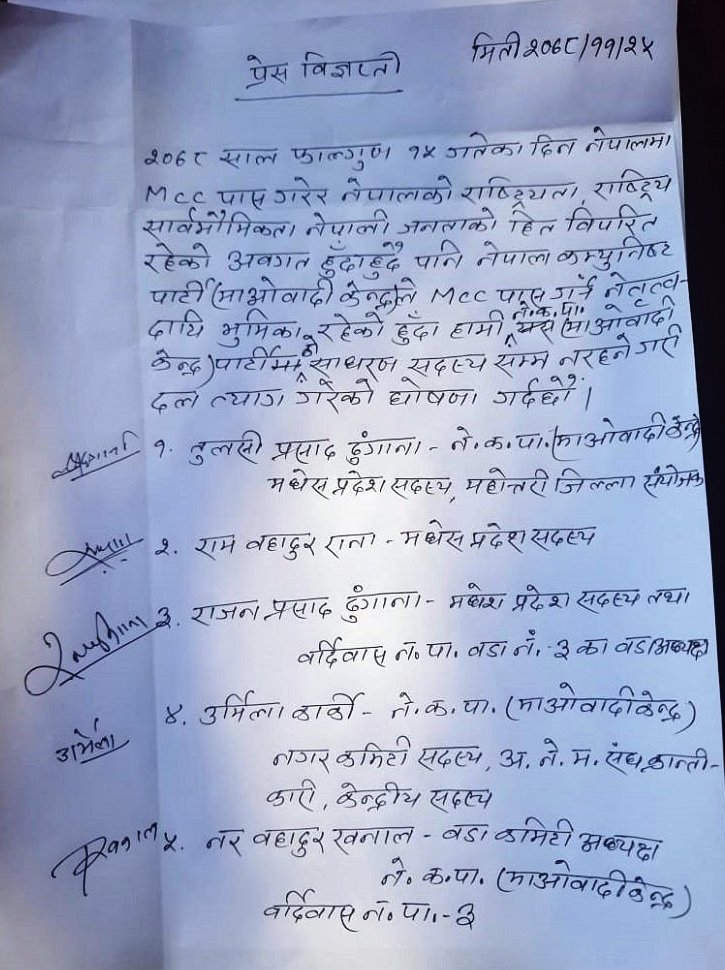 मिती २०७८/११/२५
प्रेस विज्ञप्ती
२०७८ साल फाल्गुण १५ गतेका दिन नेपालमा
MCC पास गरेर नेपालको राष्ट्रियता, राष्ट्रिय
सार्वभौमिकता नेपाली जनताको हित विपरित
रहेको अवगत हुँदाहुदै पनि नेपाल कम्युनिष्ट
पार्टी (माओवादी केन्द्र)ले MCC पास गर्न नेतृत्व-
दायि भुमिका रहेको हुँदा हामी ने.क.पा. (माओवादी
केन्द्र) पार्टीमा को साधरण सदस्य सम्म नरहने गरी
दल त्याग गरेको घोषणा गर्दछौं।
१. तुलसी प्रसाद ढुंगाना - ने.क.पा. (माओवादी केन्द्र)
मधेस प्रदेश सदस्य, महोत्तरी जिल्ला संयोजक
२. राम वहादुर राना - मधेस प्रदेश सदस्य
३. राजन प्रसाद ढुंगाना - मधेश प्रदेश सदस्य तथा
वर्दिवास न.पा. वडा नं. -३ का वडा अध्यक्ष
४. उर्मिला कार्की - ने.क.पा. (माओवादी केन्द्र)
उर्मिला
नगर कमिटी सदस्य, अ.ने.म. संघ क्रान्ती-
कारी, केन्द्रीय सदस्य
५. नर वहादुर खनाल - वडा कमिटी अध्यक्ष
ने.क.पा. (माओवादी केन्द्र)
वर्दिवास न.पा.-३